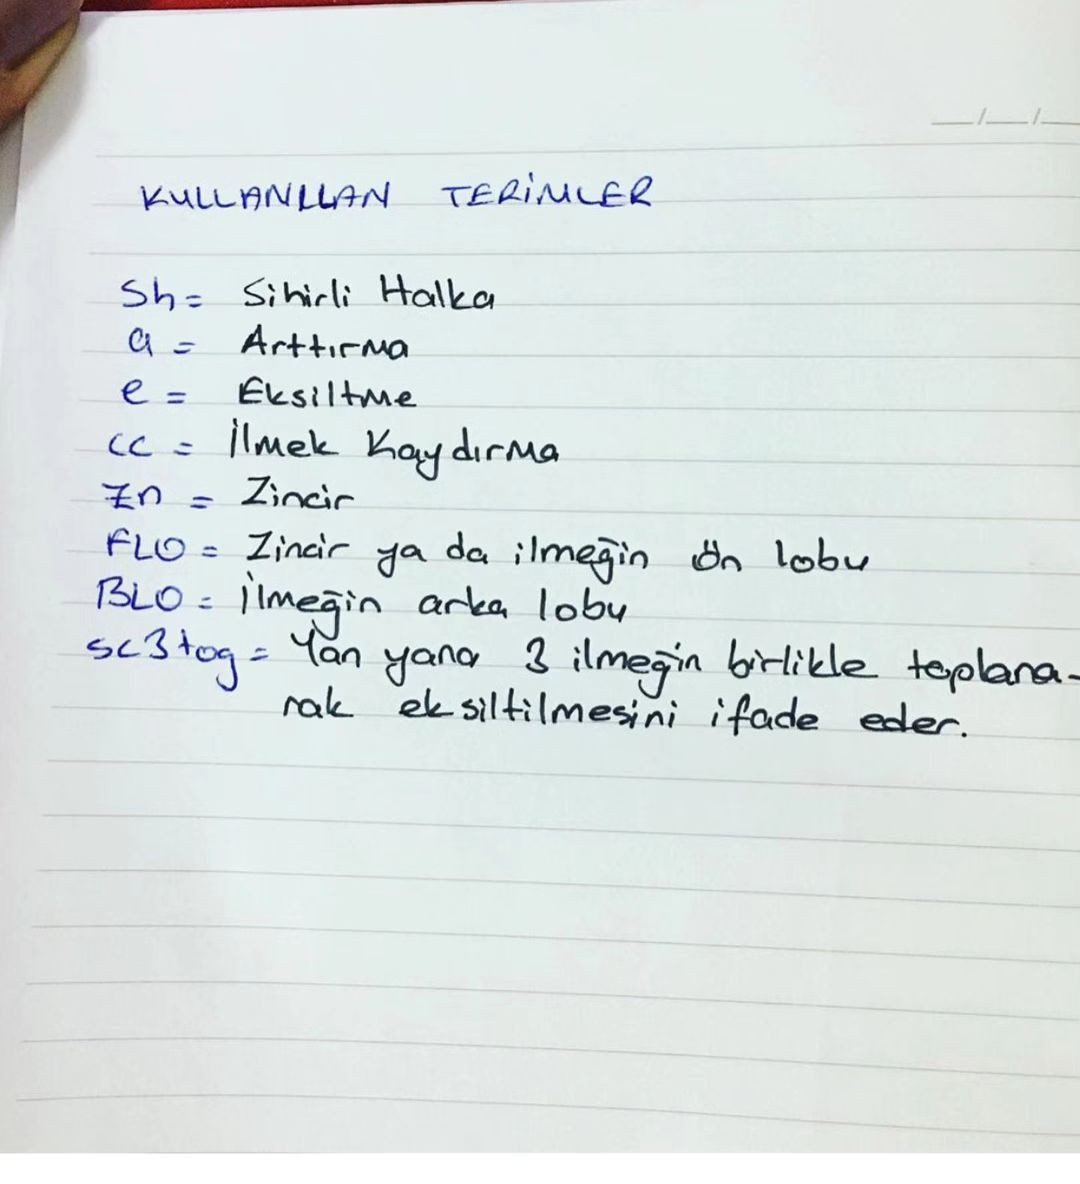 KULLANILAN TERİMLER
Sh = Sihirli Halka
a = Arttırma
e = Eksiltme
cc = İlmek Kaydırma
Zn = Zincir
FLO = Zincir ya da ilmeğin ön lobu
BLO = İlmeğin arka lobu
sc3tog = Yan yana 3 ilmeğin birlikte toplana-
rak eksiltilmesini ifade eder.